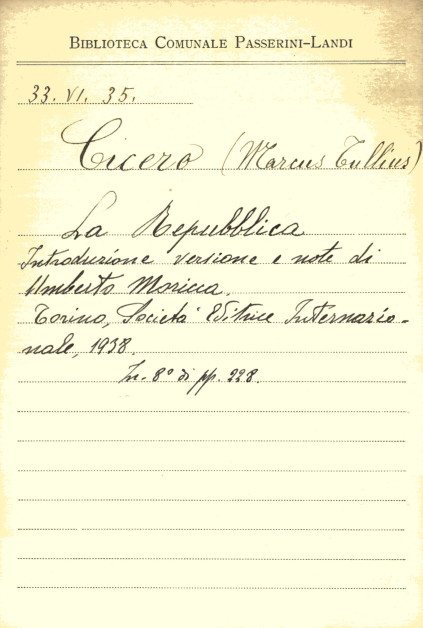 BIBLIOTECA COMUNALE PASSERINI-LANDI
33. VI. 35.
Cicero (Marcus Tullius)
La Repubblica
Introduzione versione e note di
Umberto Moricca.
Torino, Società Editrice Internazio-
nale, 1938.
In-8° di pp. 228.